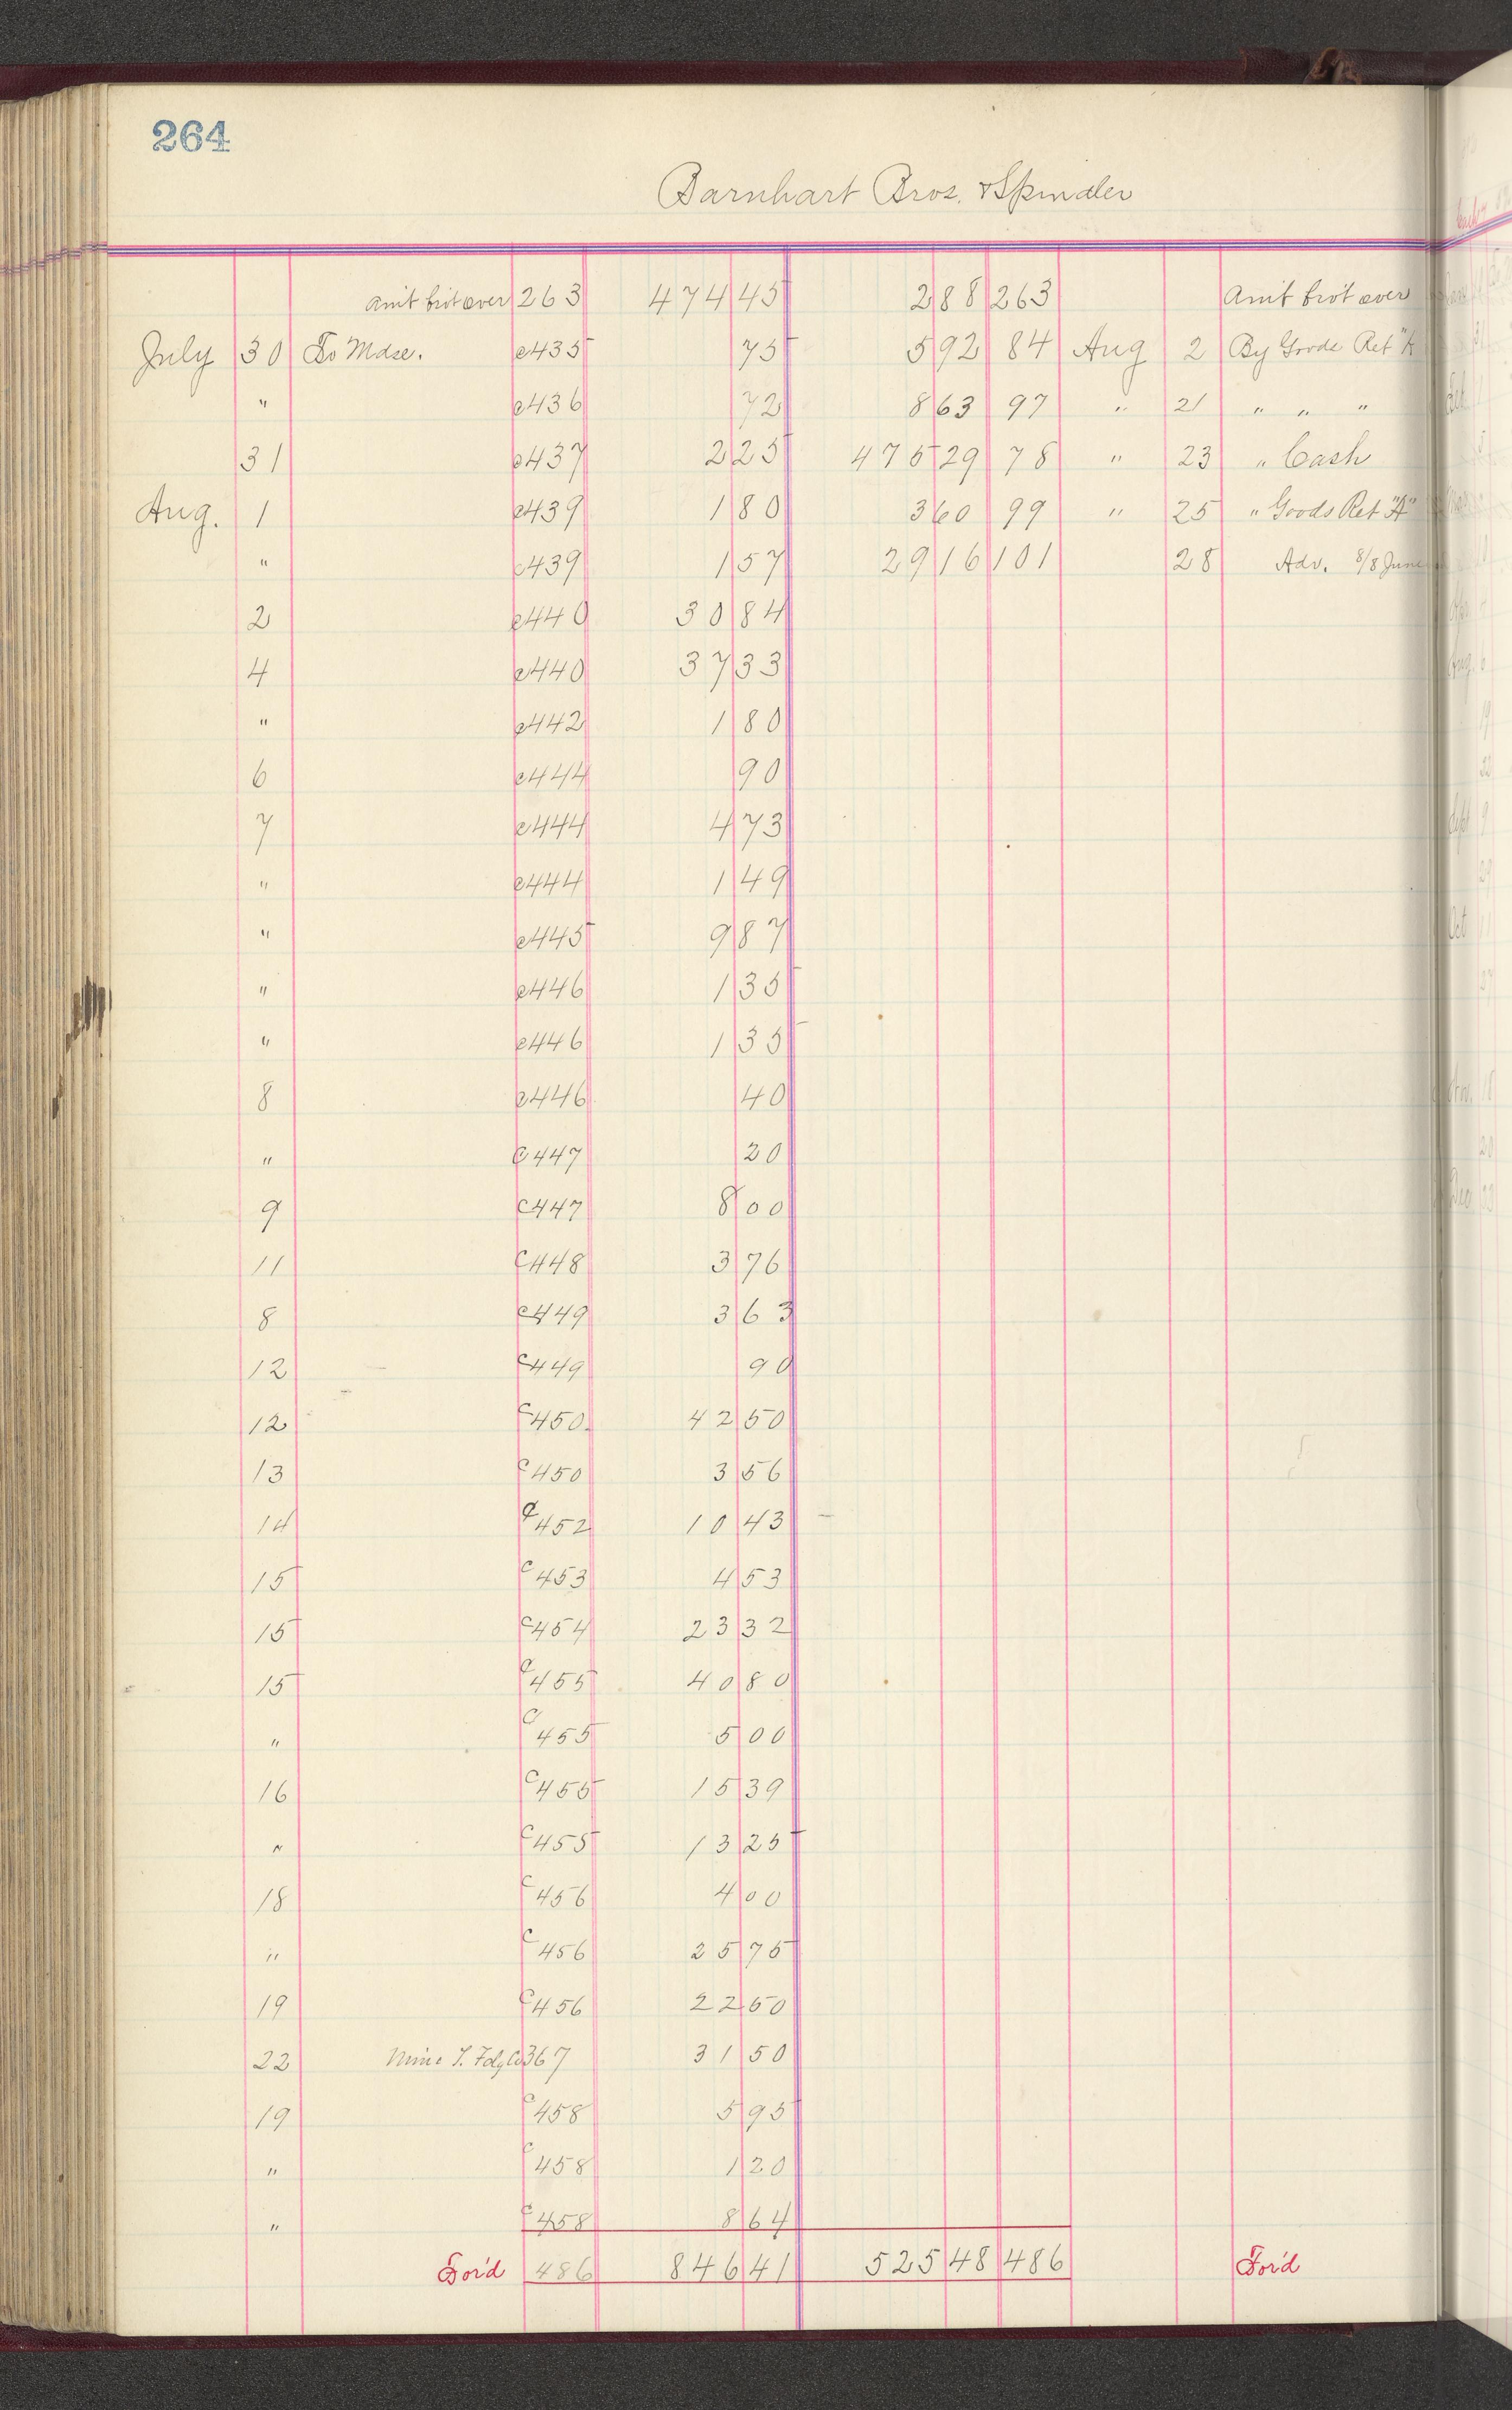 264
Barnhart Bros. & Spindler
Am't bro't over 263 474 45 2 88 263 Am't bro't over
July 30 To Mdse. c435 75 5 92 84 Aug 2 By Goods Ret "A
" c436 72 8 63 97 " 21 " " "
31 c437 2 25 475 29 78 " 23 " Cash
Aug. 1 c439 1 80 3 60 99 " 25 " Goods Ret "A"
" c439 1 57 29 16 101 28 Adv. 8/8 June
2 c440 30 84
4 c440 37 33
" c442 1 80
6 c444 90
7 c444 4 73
" c444 1 49
" c445 9 87
" c446 1 35
" c446 1 35
8 c446 40
" c447 20
9 c447 8 00
11 c448 3 76
8 c449 3 63
12 c449 90
12 c450 42 50
13 c450 3 56
14 c452 10 43
15 c453 4 53
15 c454 23 32
15 c455 40 80
" c455 5 00
16 c455 15 39
" c455 13 25
18 c456 4 00
" c456 25 75
19 c456 22 50
22 Minn. T. Fdy Co 367 31 50
19 c458 5 95
" c458 1 20
" c458 8 64
For'd 486 846 41 525 48 486 For'd